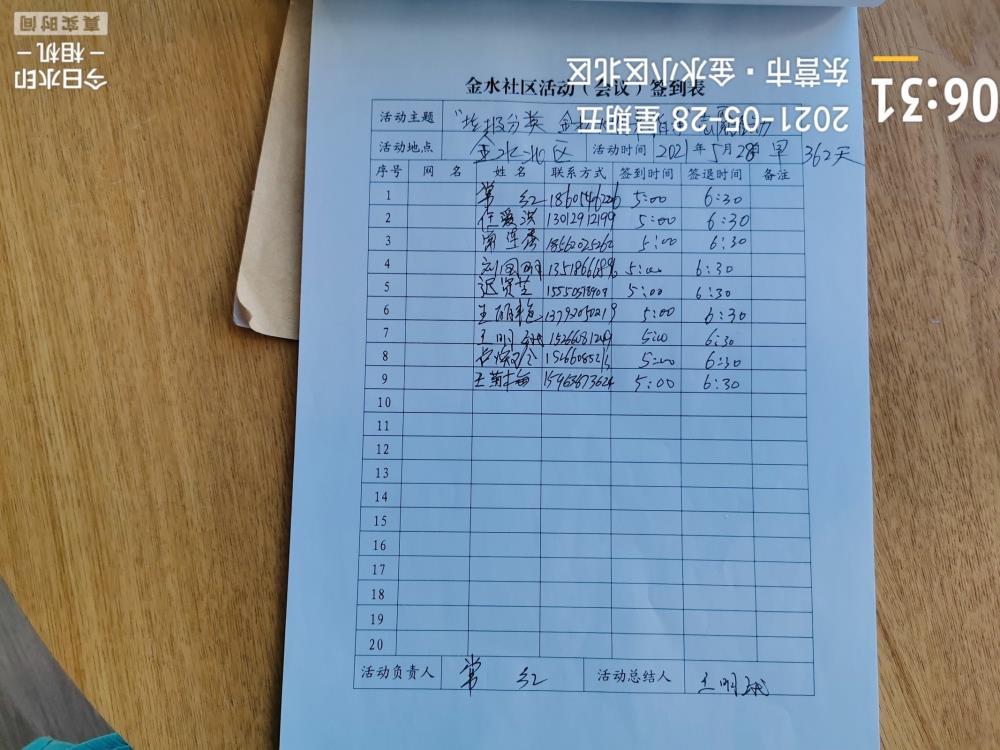 金水社区活动（会议）签到表
活动主题 "垃圾分类 金
活动地点 金水北区 活动时间 2021年5月28日早 362天
序号 网名 姓名 联系方式 签到时间 签退时间 备注
1 常红 18601546226 5:00 6:30
2 任爱洪 13012912199 5:00 6:30
3 18562025262 5:00 6:30
4 刘国明 13518666896 5:00 6:30
5 迟贤芝 15550518909 5:00 6:30
6 王丽艳 13792050219 5:00 6:30
7 王明 15266081249 5:00 6:30
8 5:00 6:30
9 王菊梅 15963873624 5:00 6:30
10
11
12
13
14
15
16
17
18
19
20
活动负责人 常红 活动总结人 王明
06:31
2021-05-28 星期五
东营市·金水小区北区
今日水印
－相机－
真实时间